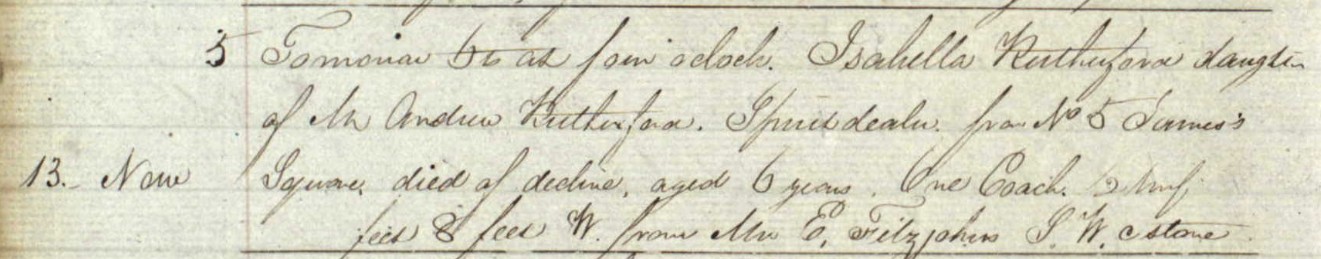 5 Tomorrow 6th at four o'clock. Isabella Rutherford daughter
of Mr Andrew Rutherford. Spirit dealer. from No 5 James's
13. New Square, died of decline, aged 6 years. One Coach.
feet 8 feet W. from Mr E. Fitzjohns S. W. Stone